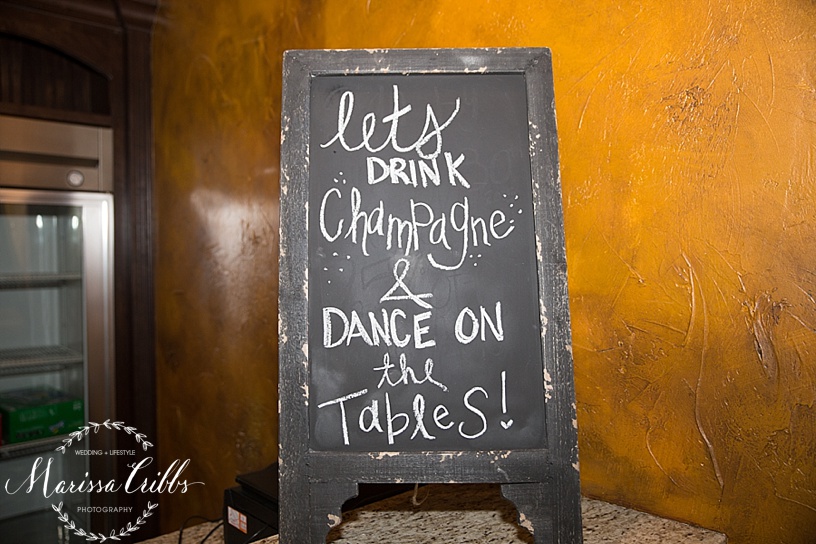 lets
DRINK
Champagne
&
DANCE ON
the
Tables!
WEDDING + LIFESTYLE
Marissa Cribbs
PHOTOGRAPHY